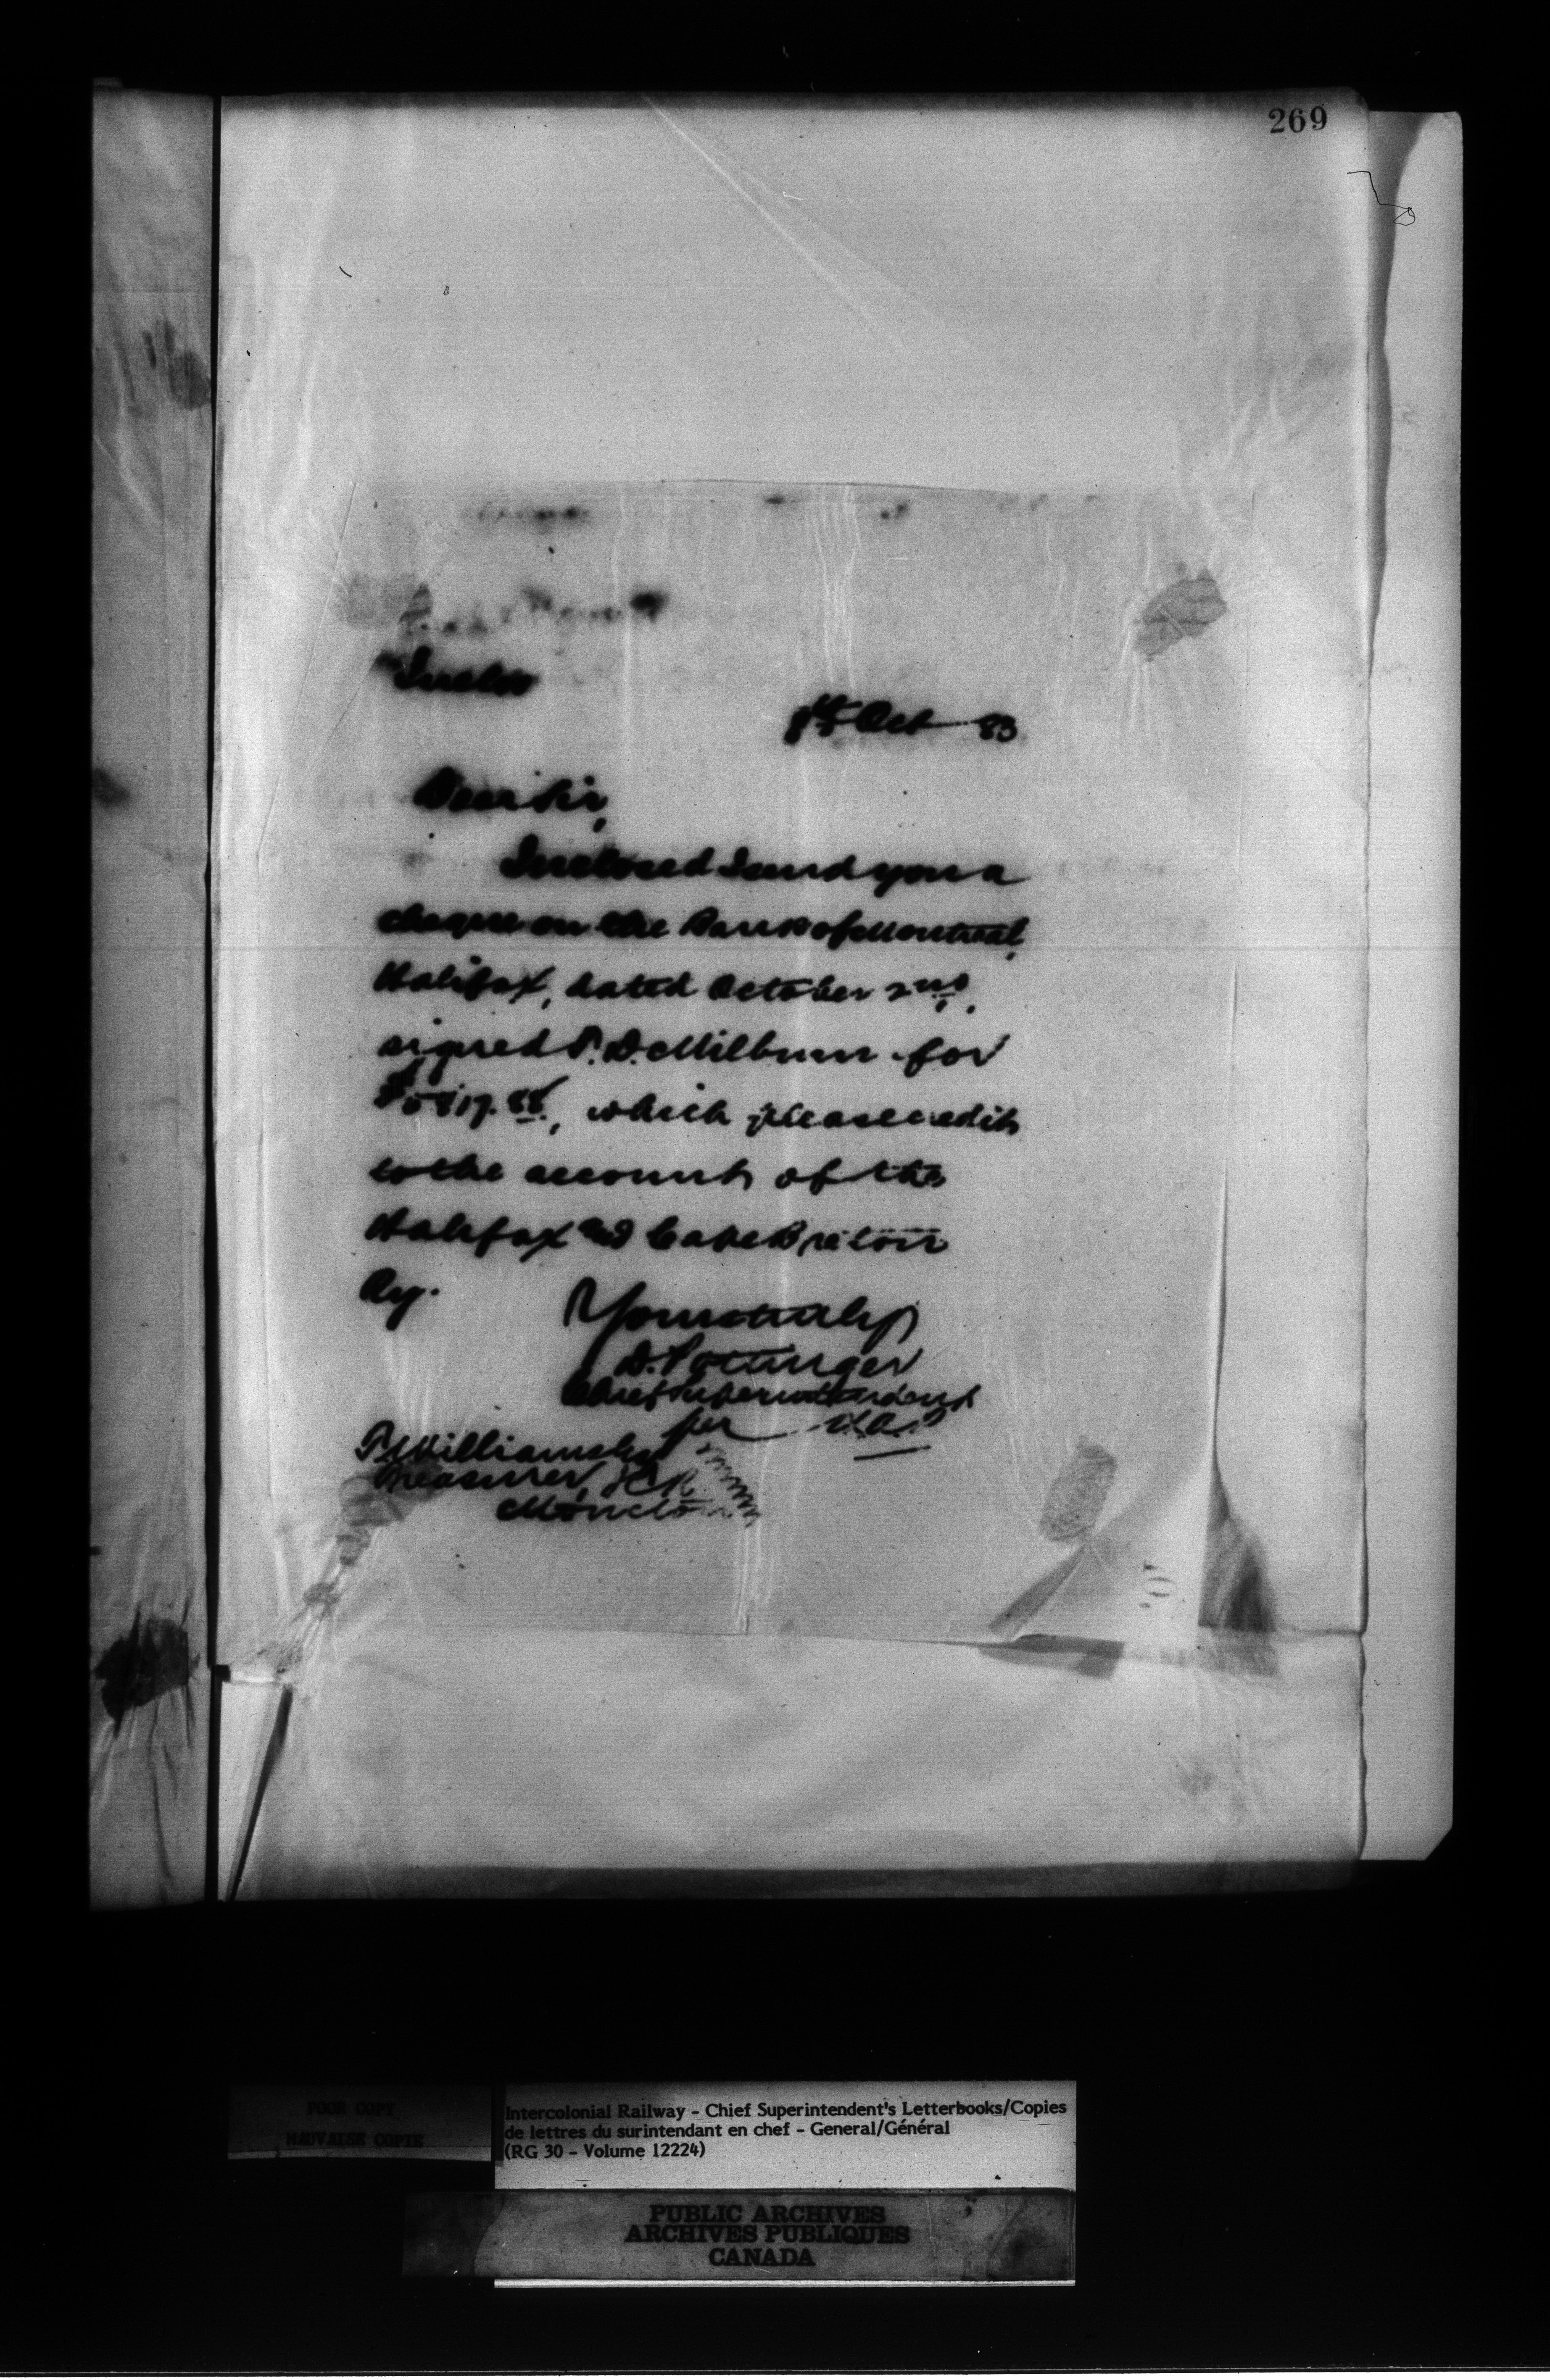 269
Inclo
8th Oct 83
Dear Sir,
Inclosed I send you a
cheque on the Bank of Montreal,
Halifax, dated October 2nd,
signed P. D. Milburn for
which please credit
to the account of the
Halifax and Cape Breton
Ry.
Yours truly
D. Pottinger
Chief Superintendent
per
Williams
Treasurer, ICR
Moncton
POOR COPY
MAUVAISE COPIE
Intercolonial Railway - Chief Superintendent's Letterbooks/Copies
de lettres du surintendant en chef - General/Général
(RG 30 - Volume 12224)
PUBLIC ARCHIVES
ARCHIVES PUBLIQUES
CANADA